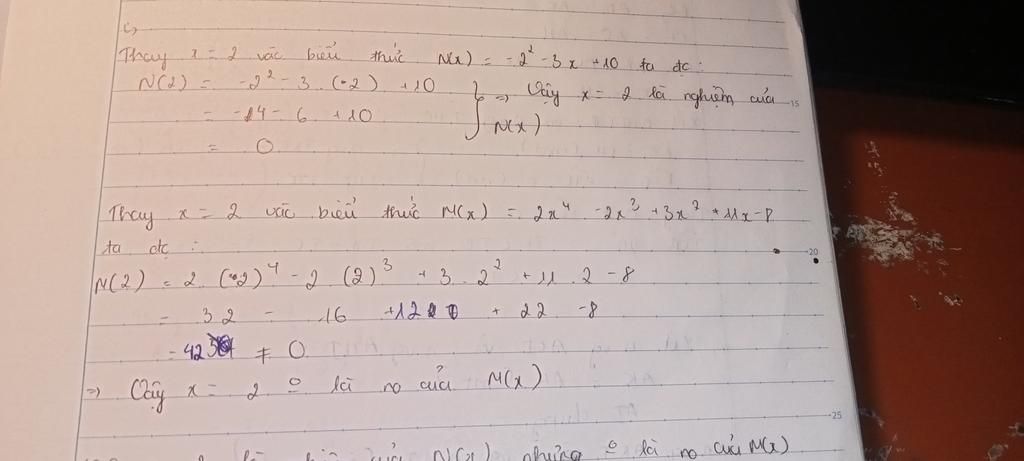 c,
Thay x = 2 vào biểu thức N(x) = -2² - 3x + 10 ta đc :
N(2) = -2² - 3 . (2) + 10 } => Vậy x = 2 là nghiệm của
= -4 - 6 + 10 N(x)
= 0
Thay x = 2 vào biểu thức M(x) = 2x⁴ - 2x³ + 3x² + 11x - 8
ta đc :
M(2) = 2 . (2)⁴ - 2 (2)³ + 3 . 2² + 11 . 2 - 8
= 32 - 16 + 12 + 22 - 8
= 42 ≠ 0
=> Vậy x = 2 o là no của M(x)
N(x) nhưng o là no của M(x)
15
20
25